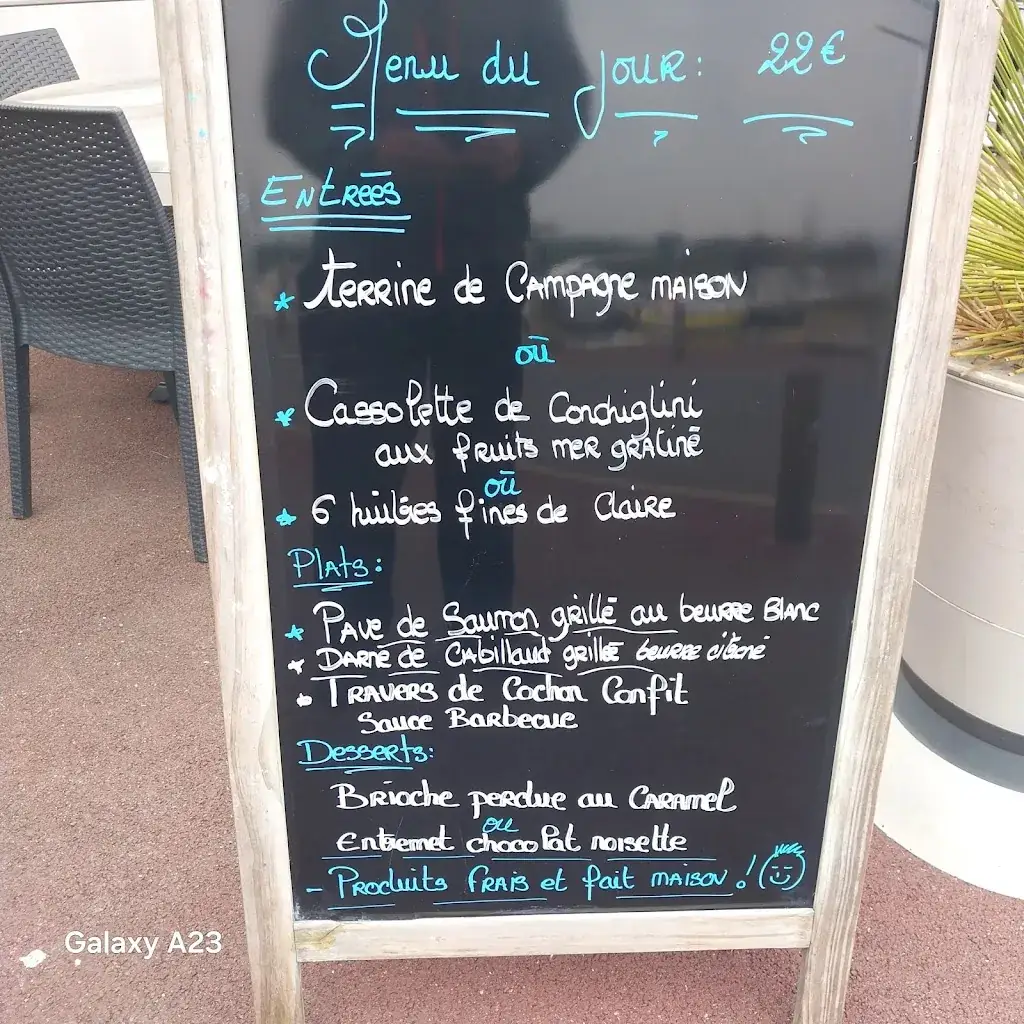 Menu du jour: 22€
Entrées
* terrine de Campagne maison
ou
* Cassolette de Conchiglini
aux fruits mer gratiné
ou
* 6 huitres fines de Claire
Plats:
* Pave de Saumon grillé au beurre Blanc
* Darne de Cabillaud grillé beurre citroné
* Travers de Cochon Confit
Sauce Barbecue
Desserts:
Brioche perdue au Caramel
ou
Entremet chocolat noisette
- Produits frais et fait maison !
Galaxy A23